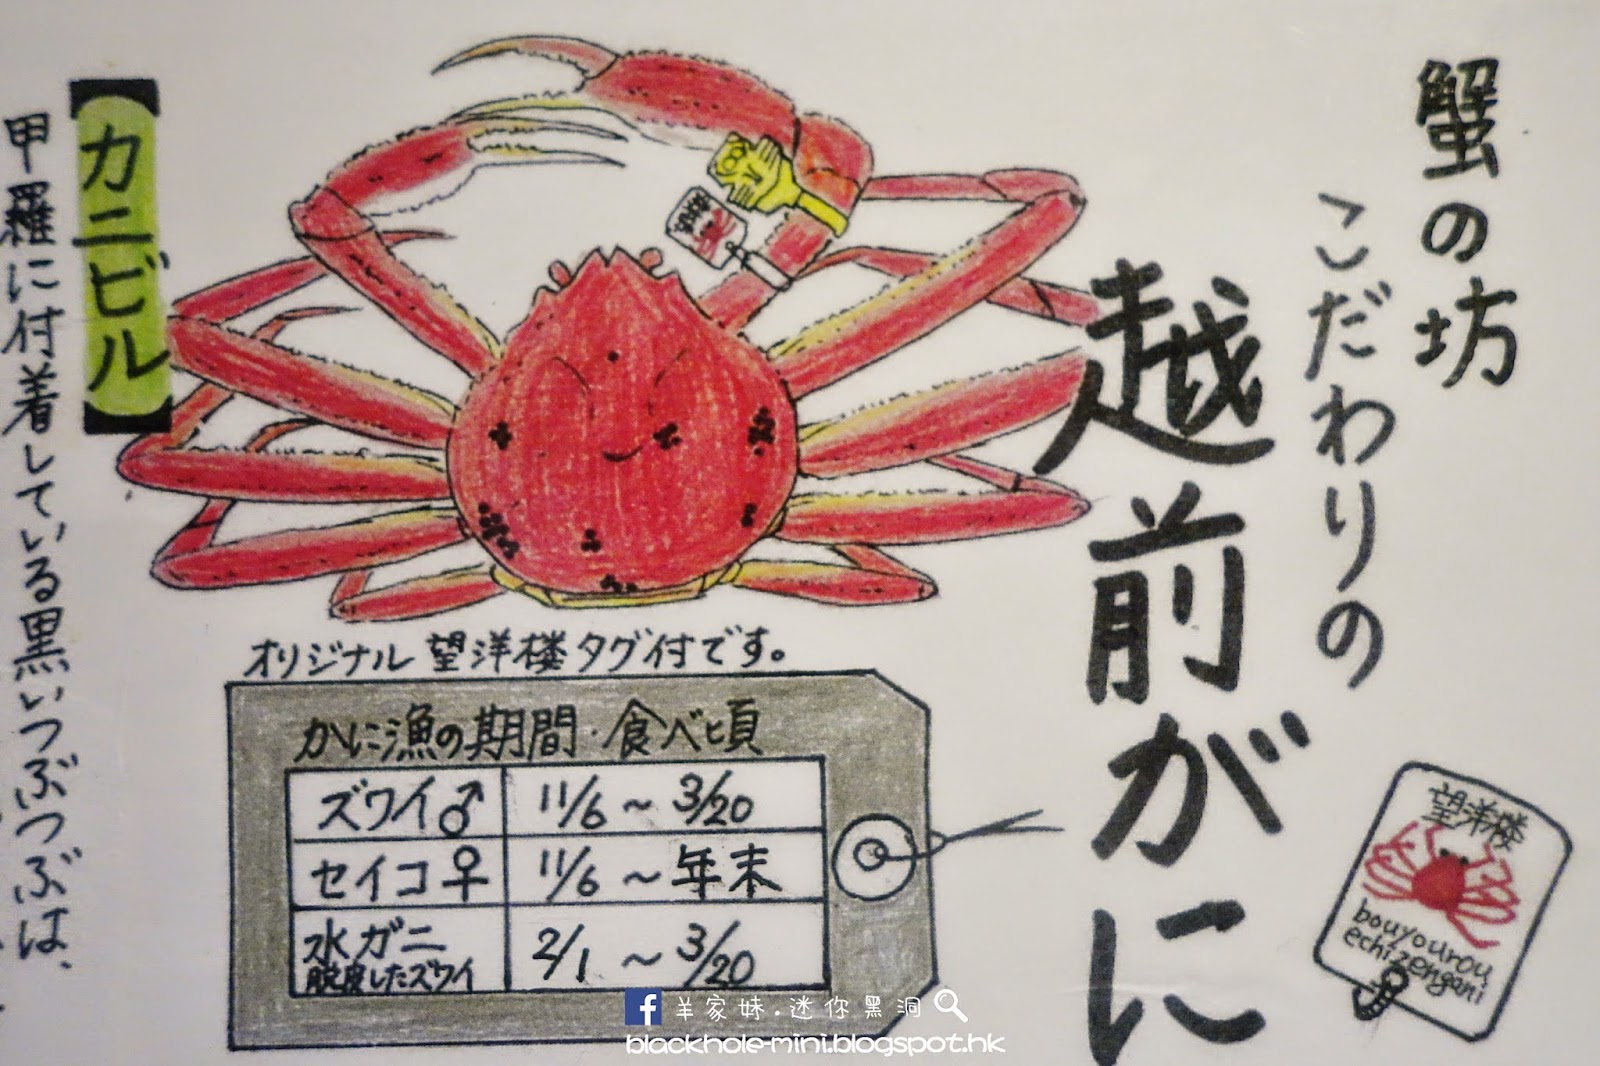 蟹の坊
こだわりの
越前がに
【カニビル】
甲羅に付着している黒いつぶつぶは、
オリジナル 望洋楼タグ付です。
かに漁の期間・食べ頃
ズワイ♂ 11/6 ~ 3/20
セイコ♀ 11/6 ~ 年末
水ガニ 2/1 ~ 3/20
脱皮したズワイ
望洋楼
bouyourou
echizengani
羊家妹.迷你黑洞
blackhole-mini.blogspot.hk